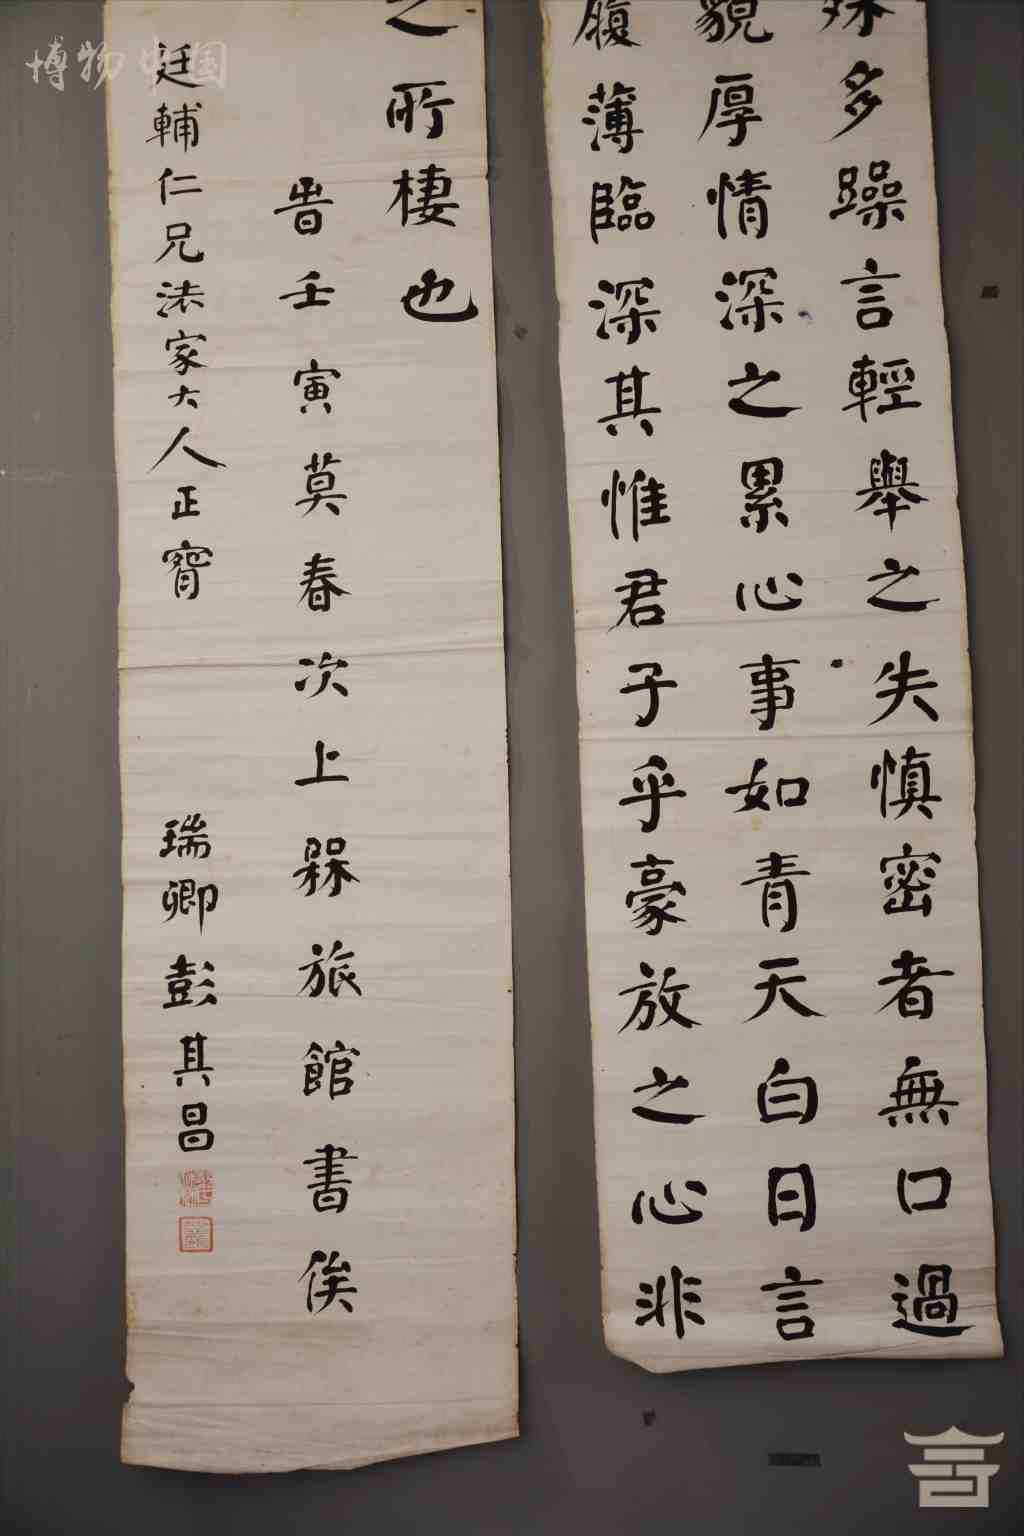 殊多躁言輕舉之失慎密者無口過
貌厚情深之累心事如青天白日言
履薄臨深其惟君子乎豪放之心非
之所棲也
旹壬寅莫春次上槑旅館書俟
廷輔仁兄法家大人正
瑞卿彭其昌
博物中国